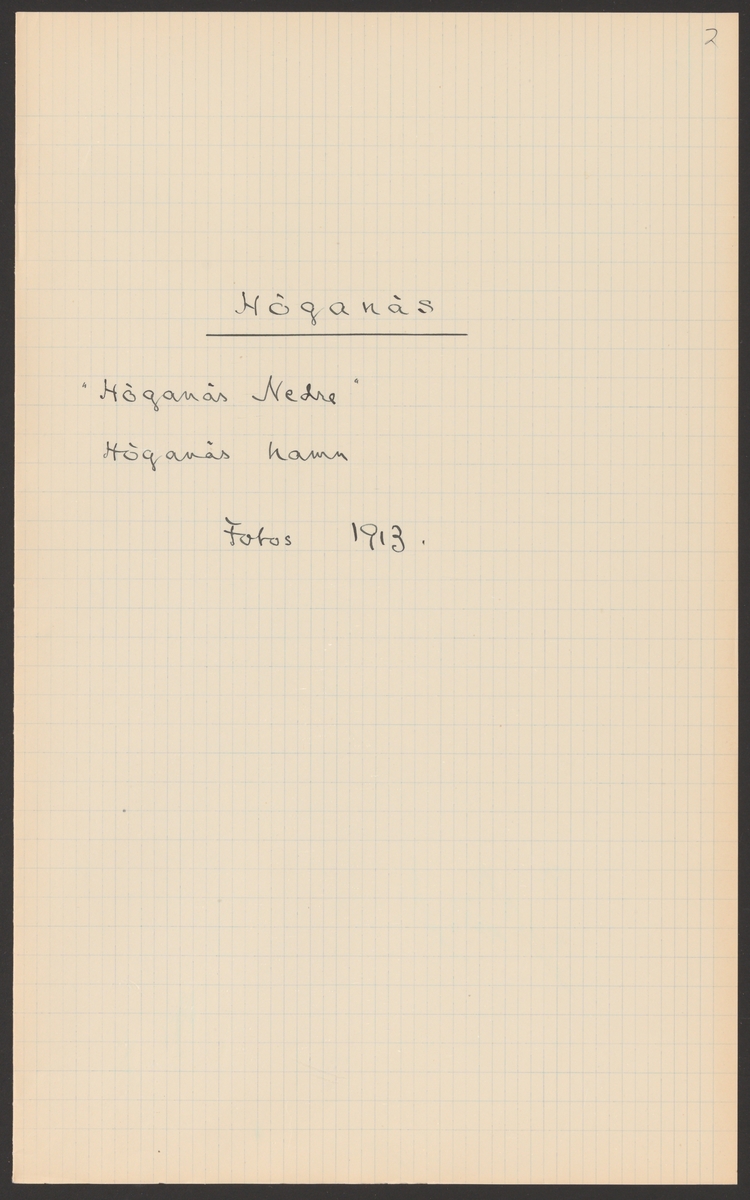 2
Höganäs
"Höganäs Nedre"
Höganäs hamn
Fotos 1913.